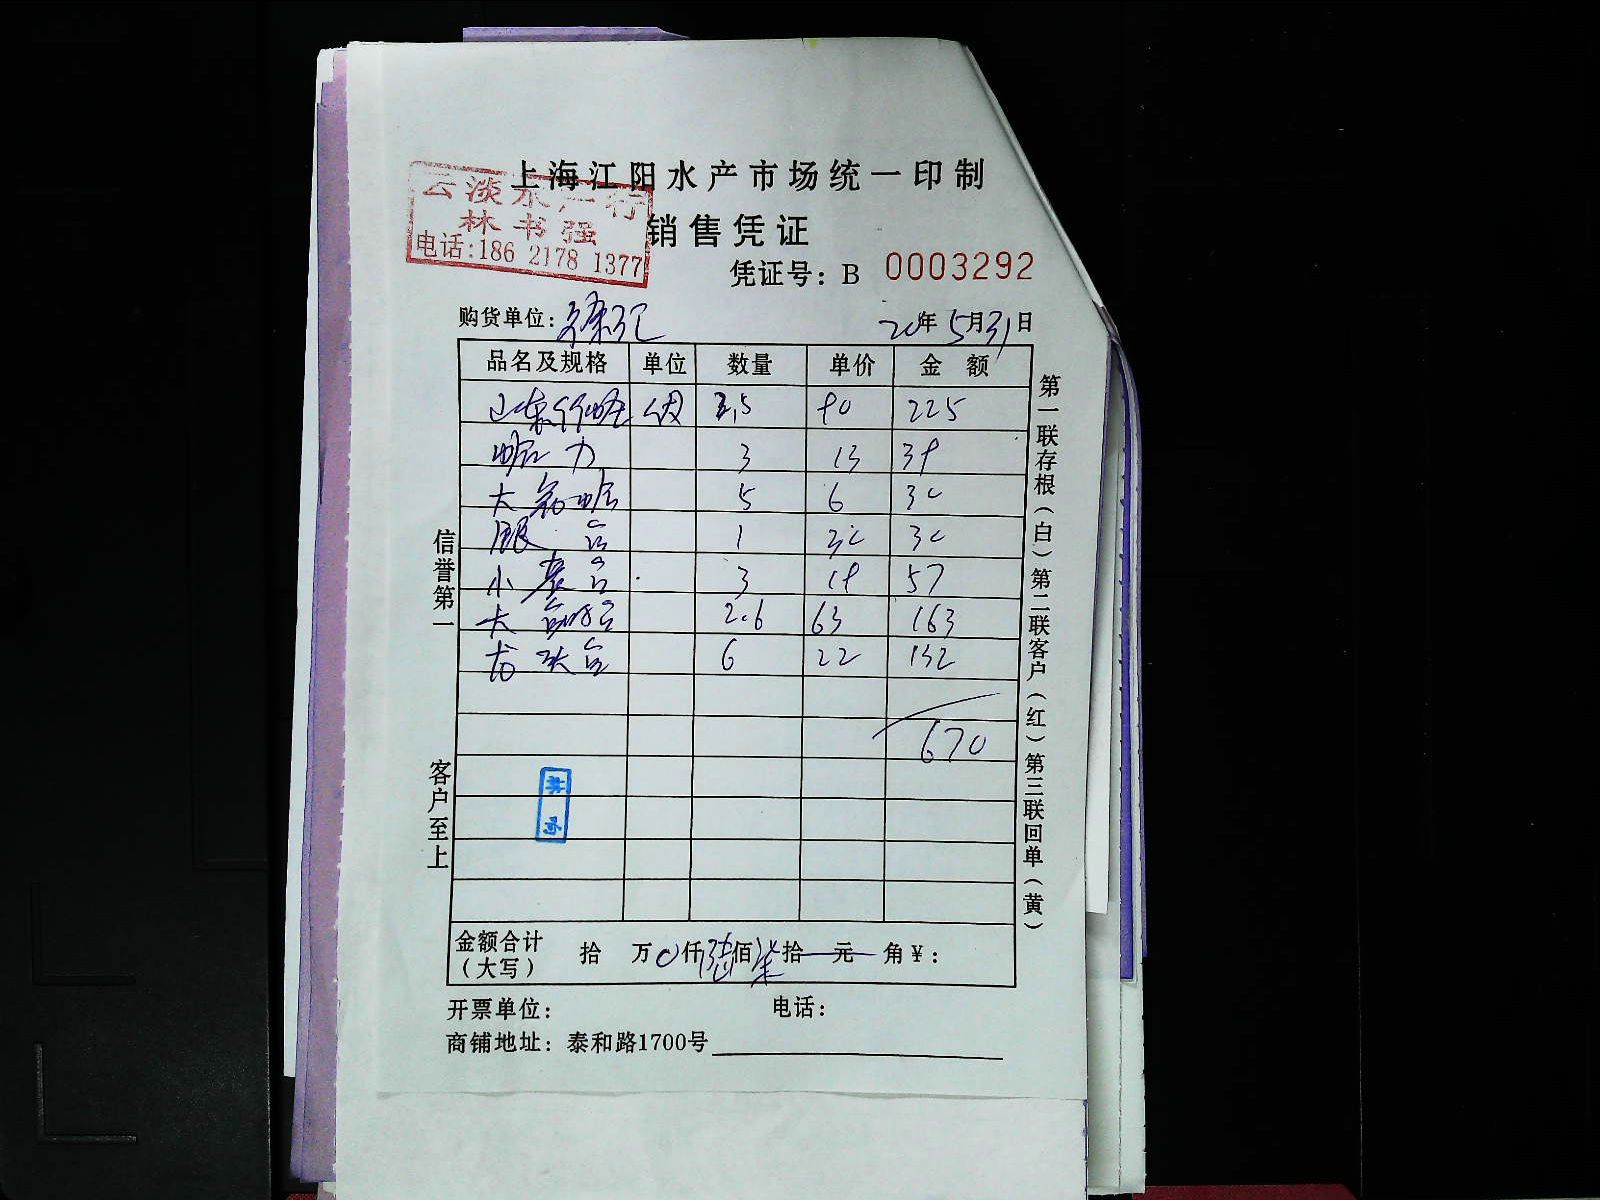 上海江阳水产市场统一印制
云淡水产行
林书强
电话:186 2178 1377
销售凭证
凭证号: B 0003292
购货单位: 徐记
20年5月31日
品名及规格 单位 数量 单价 金额
2.5 90 225
蛤力 3 13 39
大 5 6 30
1 30 30
小 3 19 57
大 2.6 63 163
龙头 6 22 132
670
金额合计 (大写) 拾 万 0仟陆佰柒拾 元 角 ¥:
开票单位: 电话:
商铺地址: 泰和路1700号
信誉第一
客户至上
第一联存根(白)第二联客户(红)第三联回单(黄)